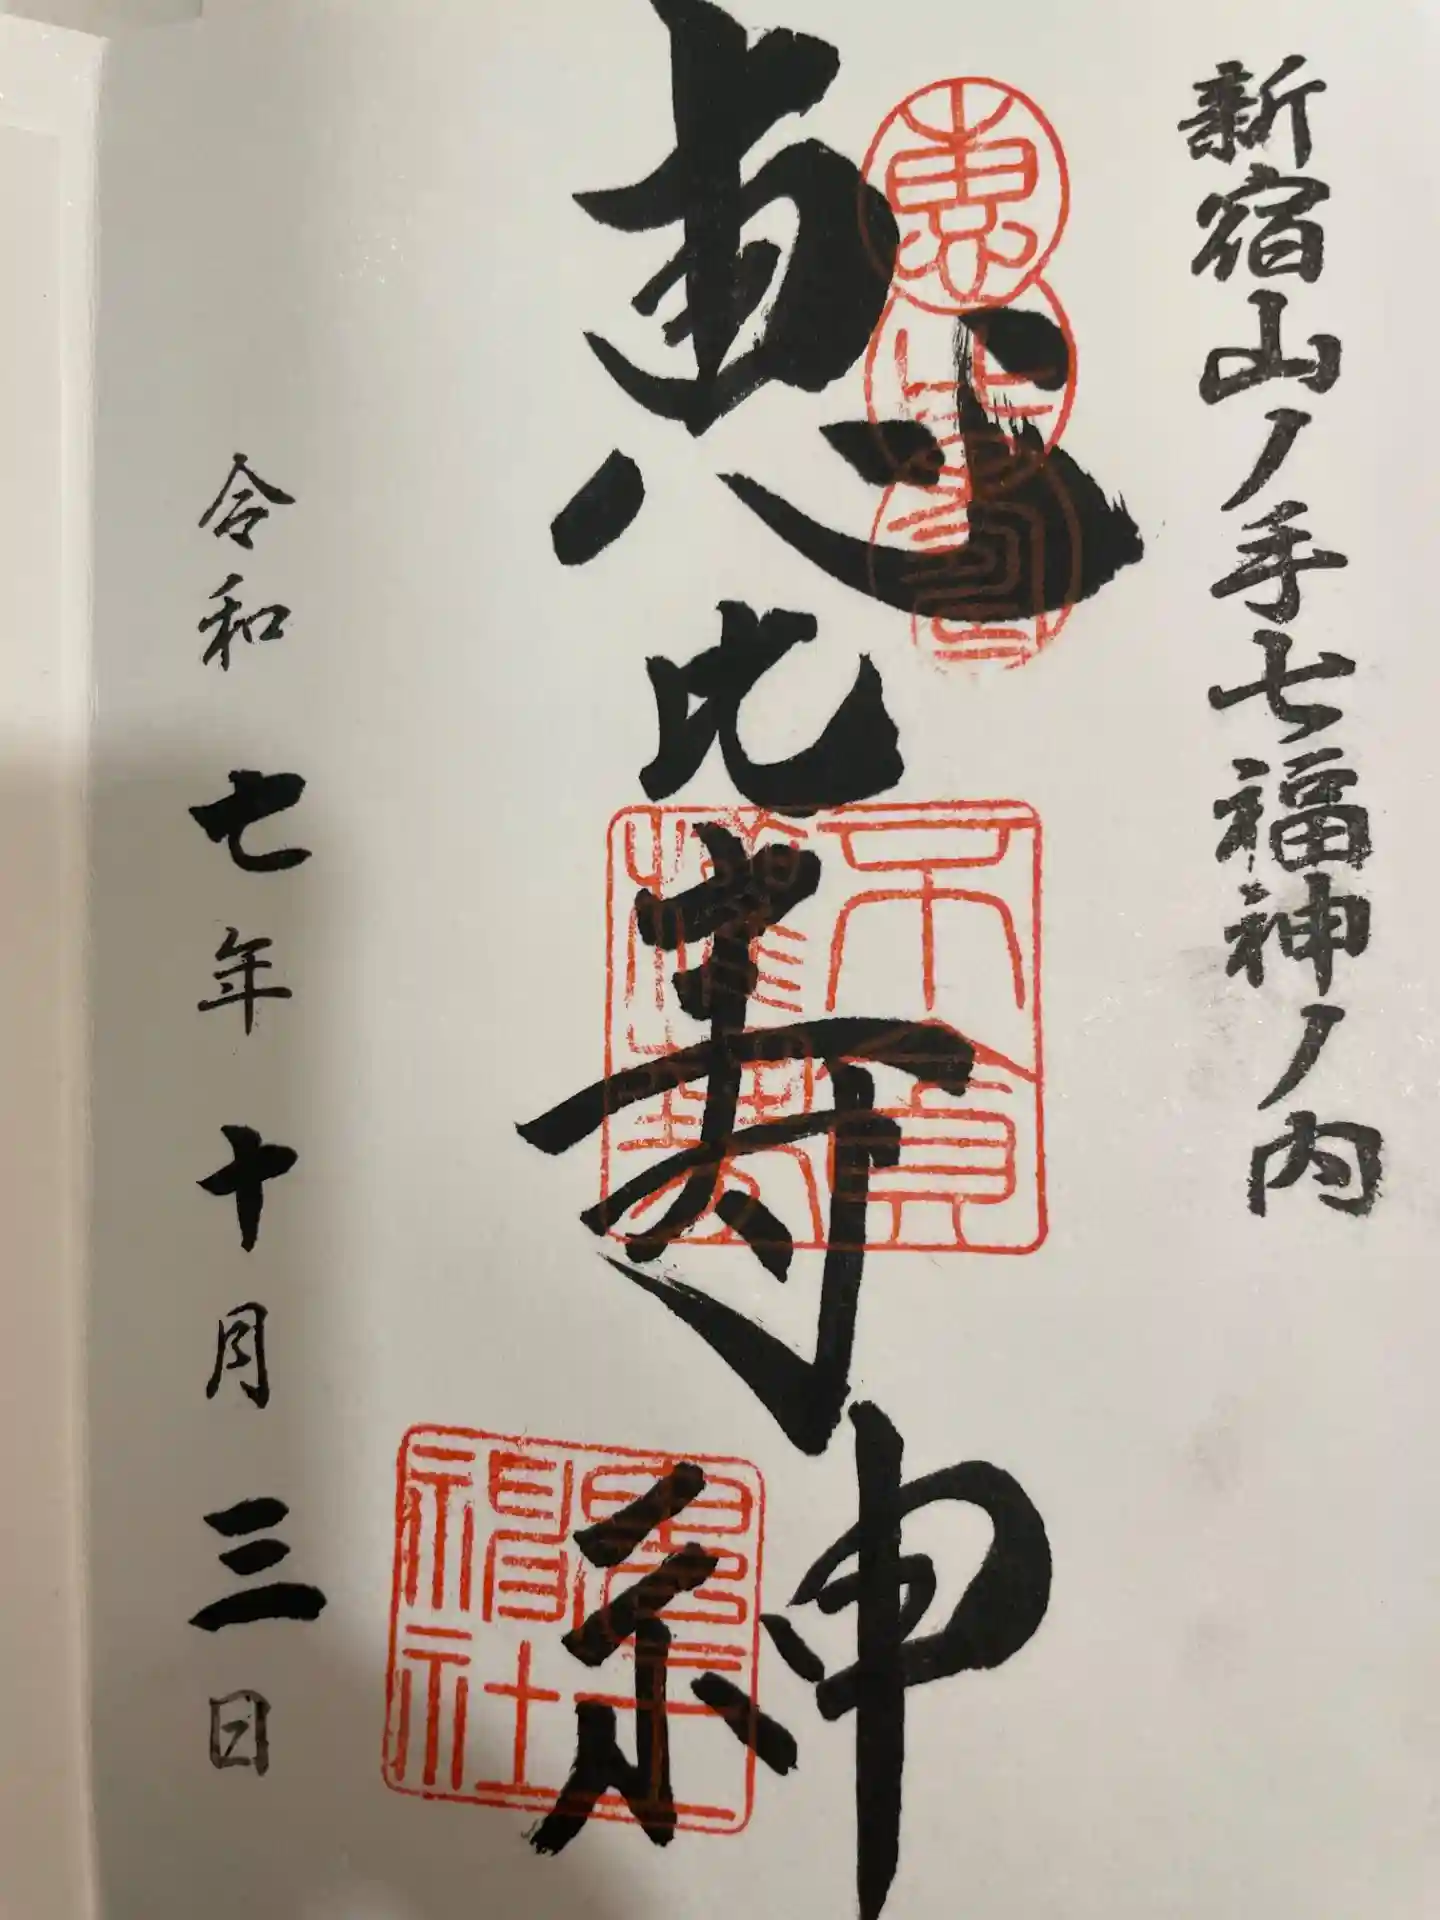 新宿山ノ手七福神ノ内
恵比寿神
令和七年十月三日
恵比寿